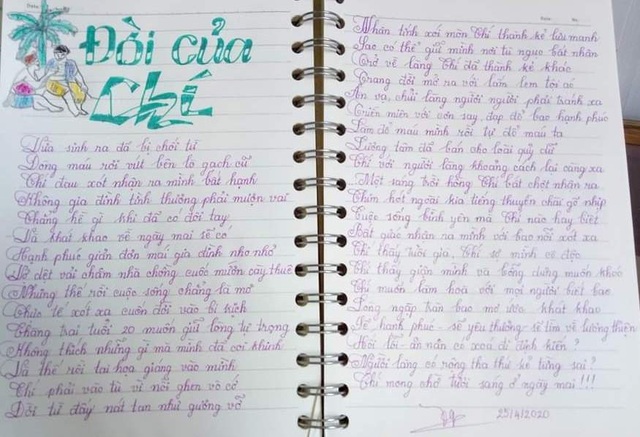 Đời của
Chí
Vừa sinh ra đã bị chối từ
Dòng máu rời vứt bên lò gạch cũ
Chí đau xót nhận ra mình bất hạnh
Không gia đình tình thương phải mượn vai
Chẳng hề gì khi đã có đôi tay
Và khát khao về ngày mai sẽ có
Hạnh phúc giản đơn mái gia đình nho nhỏ
Vợ dệt vải chăm nhà chồng cuốc mướn cày thuê
Nhưng thế rồi cuộc sống chẳng là mơ
Thực tế xót xa cuốn đời vào bi kịch
Chàng trai tuổi 20 muốn giữ lòng tự trọng
Không thích những gì mà mình đã coi khinh
Và thế rồi tai họa giáng vào mình
Chí phải vào tù vì nỗi ghen vô cớ
Đời từ đấy nát tan như gương vỡ
Nhân tính xói mòn Chí thành kẻ lưu manh
Sao có thể giữ mình nơi tù ngục bất nhân
Trở về làng Chí đã thành kẻ khác
Trang đời mở ra với lấm lem tội ác
Ăn vạ, chửi làng người người phải tránh xa
Triền miên với cơn say, đạp đổ bao hạnh phúc
Làm đổ máu mình rồi tự đổ máu ta
Lương tâm đã bán cho loài quỷ dữ
Chí với người làng khoảng cách lại càng xa
Một sáng trời hồng Chí bất chợt nhận ra
Chim hót ngoài kia tiếng thuyền chài gõ nhịp
Cuộc sống bình yên mà Chí nào hay biết
Bất giác nhận ra mình với bao nỗi xót xa
Chí thấy tuổi già, Chí sợ mình cô độc
Chí thấy giận mình và bỗng dưng muốn khóc
Chí muốn làm hoà với mọi người biết bao
Lòng ngập tràn bao mơ ước khát khao
Sẽ hạnh phúc - sẽ yêu thương - sẽ tìm về lương thiện
Hối lỗi - ăn năn có xoá đi định kiến ?
Người làng có rộng tha thứ kẻ từng sai ?
Chí mong chờ tươi sáng ở ngày mai !!!
25/4/2020